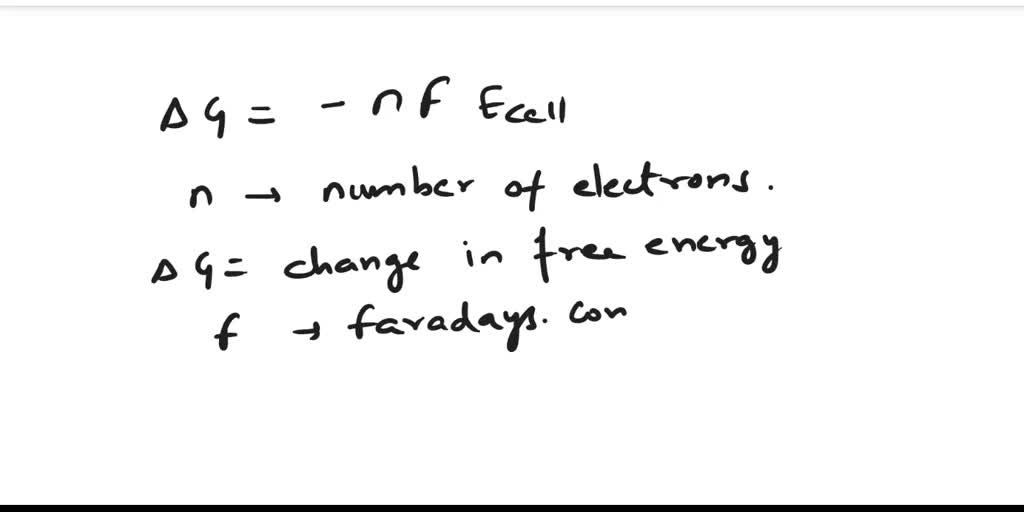 Δ G = - n f Ecell
n → number of electrons.
Δ G = change in free energy
f → faradays. con